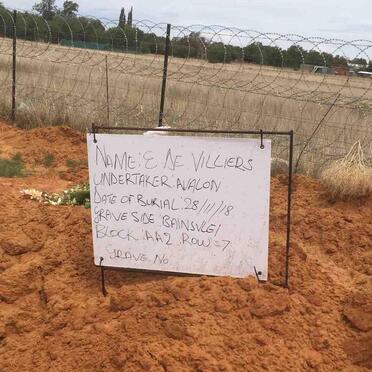 NAME: E DE VILLIERS
UNDERTAKER: AVALON
DATE OF BURIAL: 28/11/18
GRAVE SIDE: BAINSVLEI
BLOCK: AA2 ROW=7
GRAVE NO.